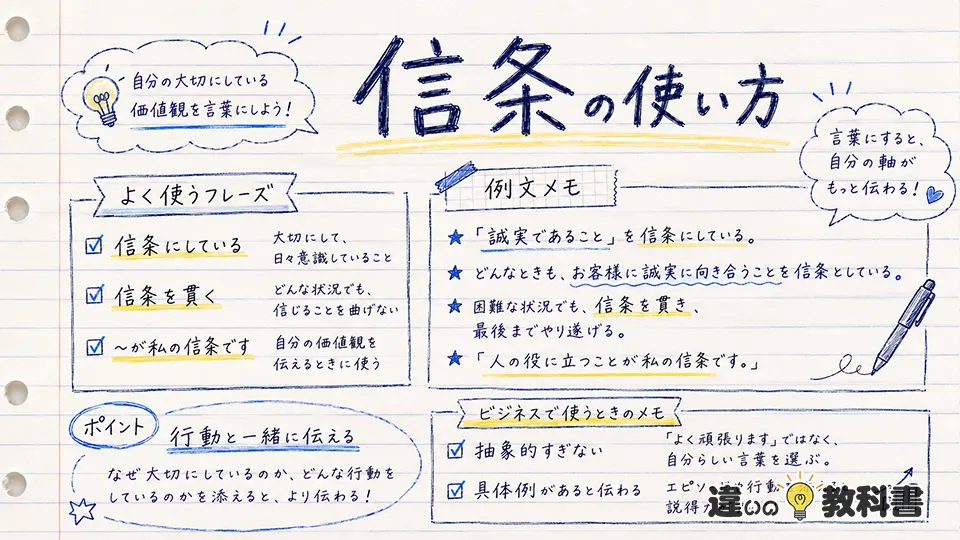 自分の大切にしている
価値観を言葉にしよう!
信条の使い方
言葉にすると、
自分の軸が
もっと伝わる!
よく使うフレーズ
信条にしている
大切にして、
日々意識していること
信条を貫く
どんな状況でも、
信じることを曲げない
～が私の信条です
自分の価値観を
伝えるときに使う
例文メモ
「誠実であること」を信条にしている。
どんなときも、お客様に誠実に向き合うことを信条としている。
困難な状況でも、信条を貫き、
最後までやり遂げる。
「人の役に立つことが私の信条です。」
ポイント
行動と一緒に伝える
なぜ大切にしているのか、どんな行動を
しているのかを添えると、より伝わる!
ビジネスで使うときのメモ
抽象的すぎない
「よく頑張ります」ではなく、
自分らしい言葉を選ぶ。
具体例があると伝わる
エピソ
行動
説得
違いの教科書